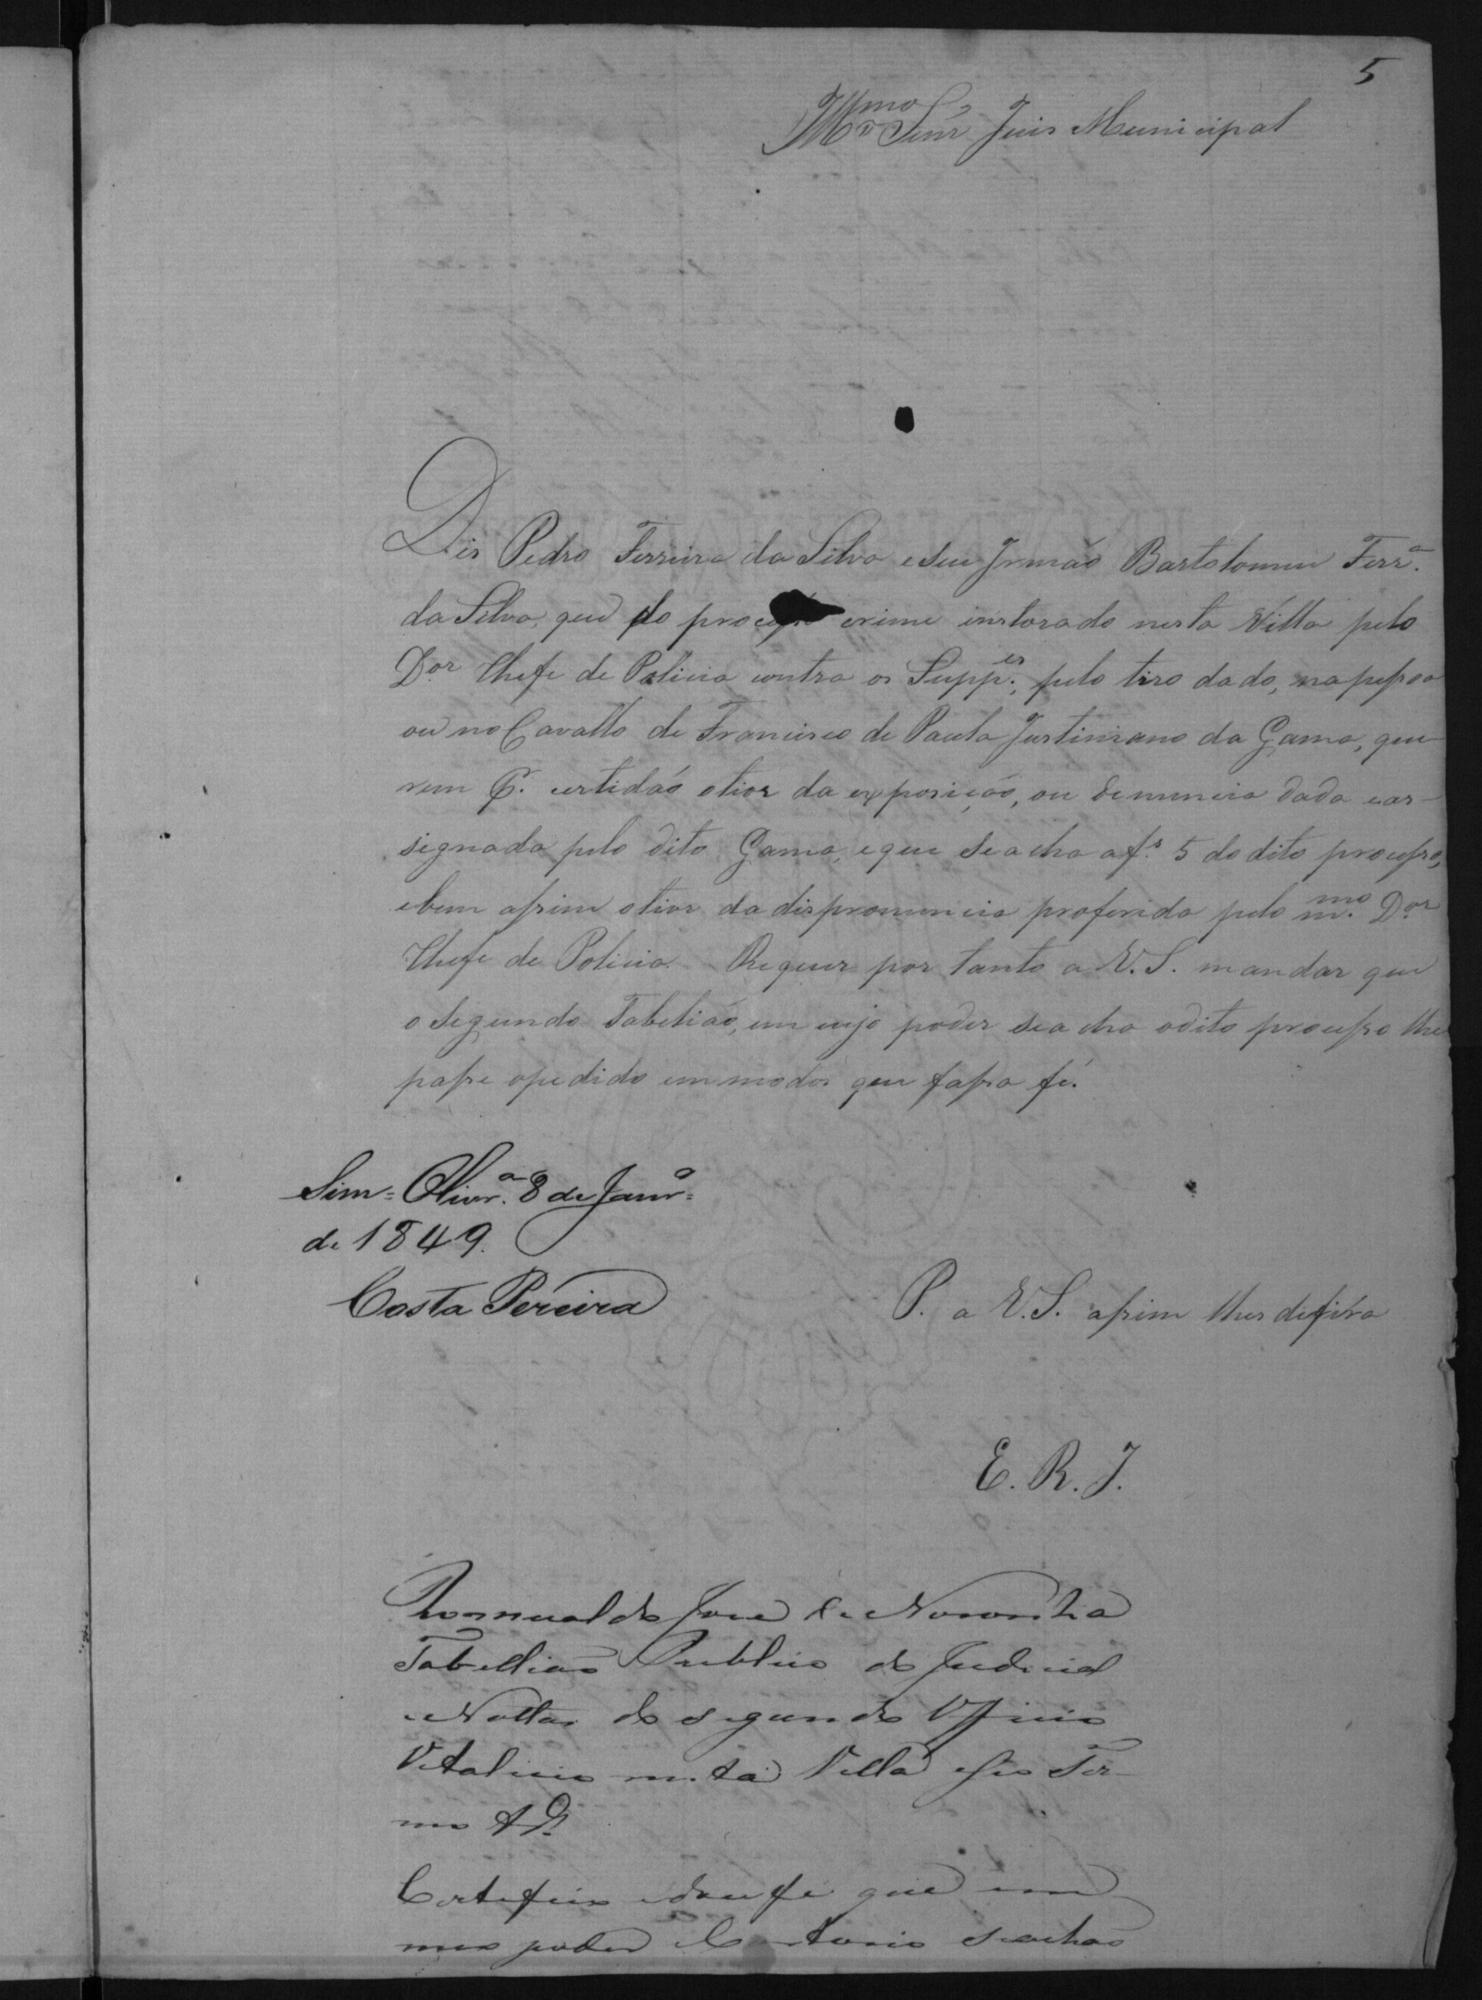 5
Illmo Senr Juis Municipal
Dis Pedro Ferreira da Silva e seu Irmaõ Bartolomeu Ferr.ª
da Silva, que do processo crime instorado nesta Villa pelo
D.or Chefe de Policia contra os Supp.es, pelo tiro dado, na pessoa
ou no Cavallo de Francisco de Paula Justiniano da Gama, que-
rem P. certidaõ otior da exposiçaõ, ou denuncia dada e as-
signada pelo dito Gama, e que se acha a f.s 5 do dito processo,
e bem assim otior da dispronuncia proferida pelo m.mo D.or
Chefe de Policia. Requer por tanto a V.S. mandar que
o Segundo Tabeliaõ, em cujo poder se acha o dito processo lhe
passe o pedido em modo que fassa fé.
Sim = Olivr.ª 8 de Janr.º
de 1849.
Costa Pereira
P. a V.S. assim lhes defira
E. R. J.
Romualdo Jose de Noronha
Tabelliaõ Publico do Judicial
e Nottas do segundo Officio
Vitalicio nesta Villa e seo Ter-
mo &.ª
Certefico e dou fé que em
meo poder e Cartorio se achaõ